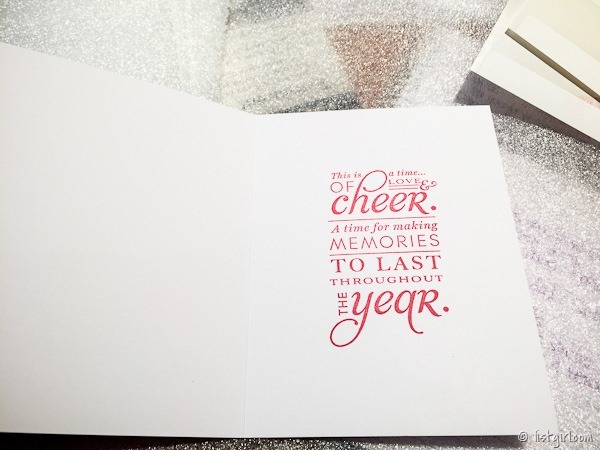 This is a time...
OF LOVE &
cheer.
A time for making
MEMORIES
TO LAST
THROUGHOUT
THE year.
© listgirl.com